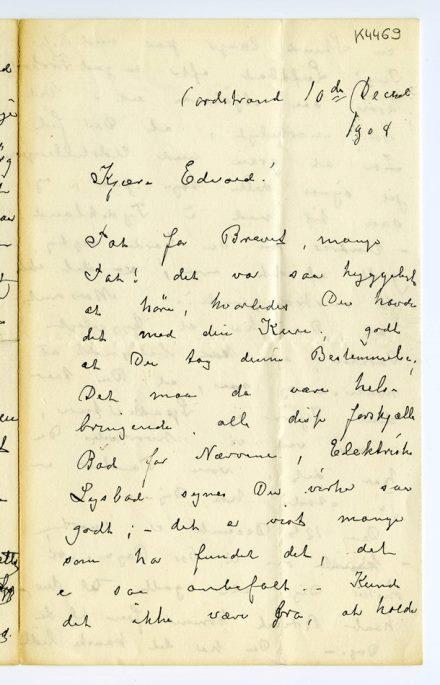 K4469
Nordstrand 10de Decemb
1908
Kjære Edvard!
Tak for Brevet, mange
Tak! det var saa hyggeligt
at höre, hvorledes Du havde
det med din Kur; godt
at Du tog denne Bestemmelse,
Det maa da være hels-
bringende alle disse forskjælli
Bad for Nærvene, Elektriske
Lysbad synes Du virke saa
godt; – det er vist mange
som ha fundet det, det
e saa anbefalt. – Kunde
det ikke være bra, at holde